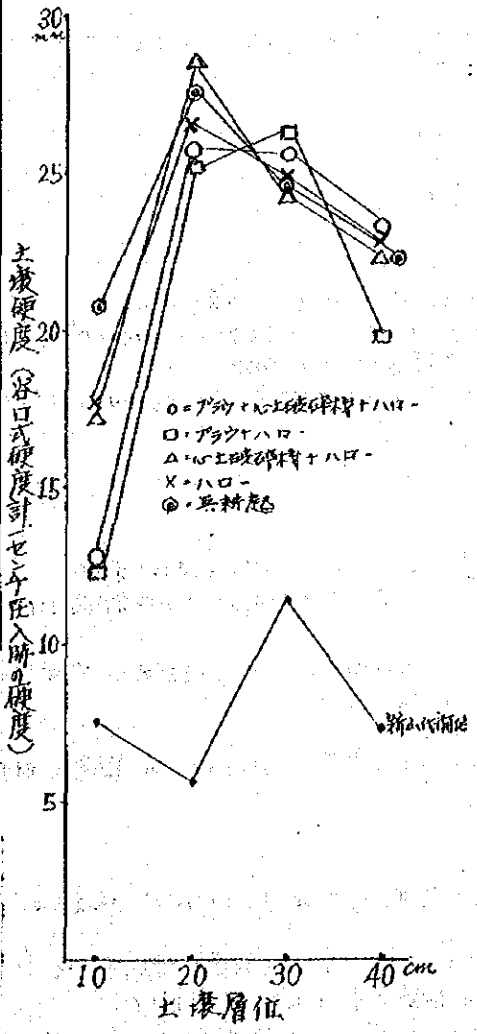 30
mm
25
20
15
10
5
土壌硬度(谷口式硬度計一センチ圧入時の硬度)
○=プラウ+心土破砕機+ハロー
□=プラウ+ハロー
△=心土破砕機+ハロー
×=ハロー
10 20 30 40 cm
土壌層位